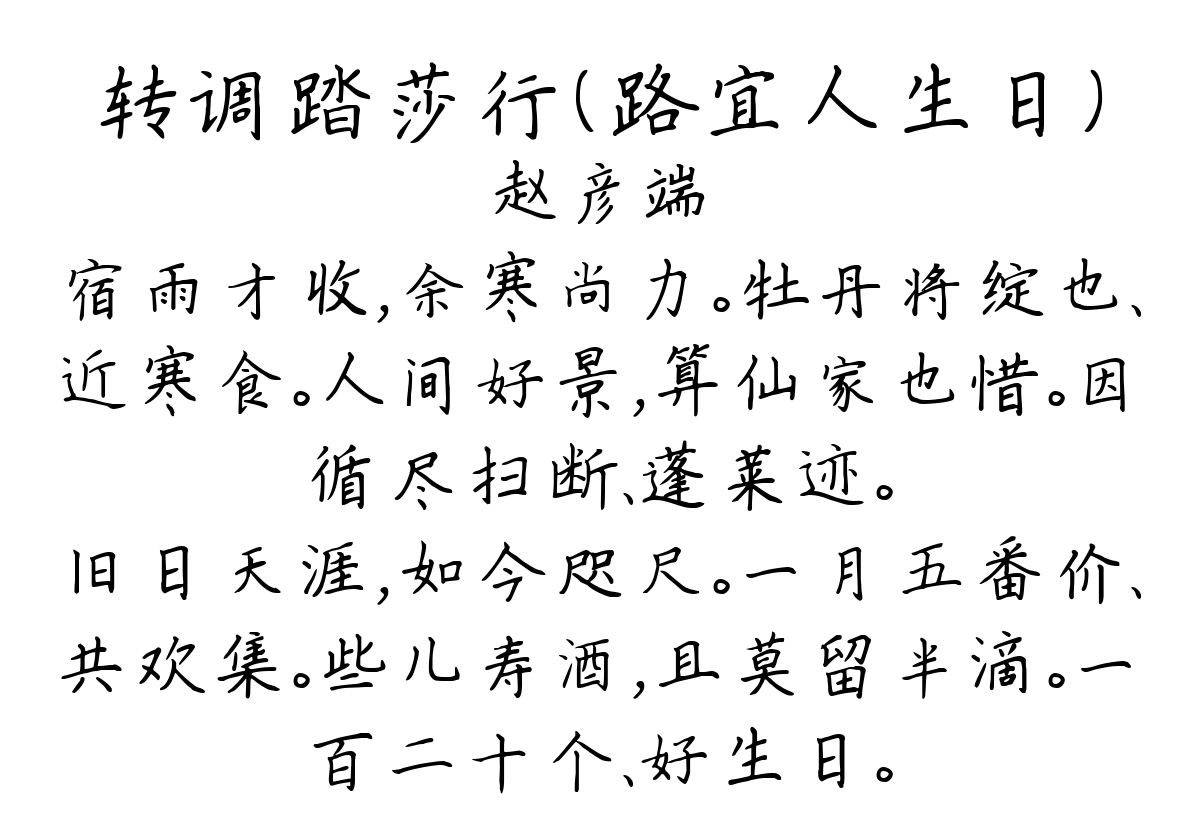 转调踏莎行(路宜人生日)
赵彦端
宿雨才收,余寒尚力。牡丹将绽也、
近寒食。人间好景,算仙家也惜。因
循尽扫断、蓬莱迹。
旧日天涯,如今咫尺。一月五番价、
共欢集。些儿寿酒,且莫留半滴。一
百二十个、好生日。